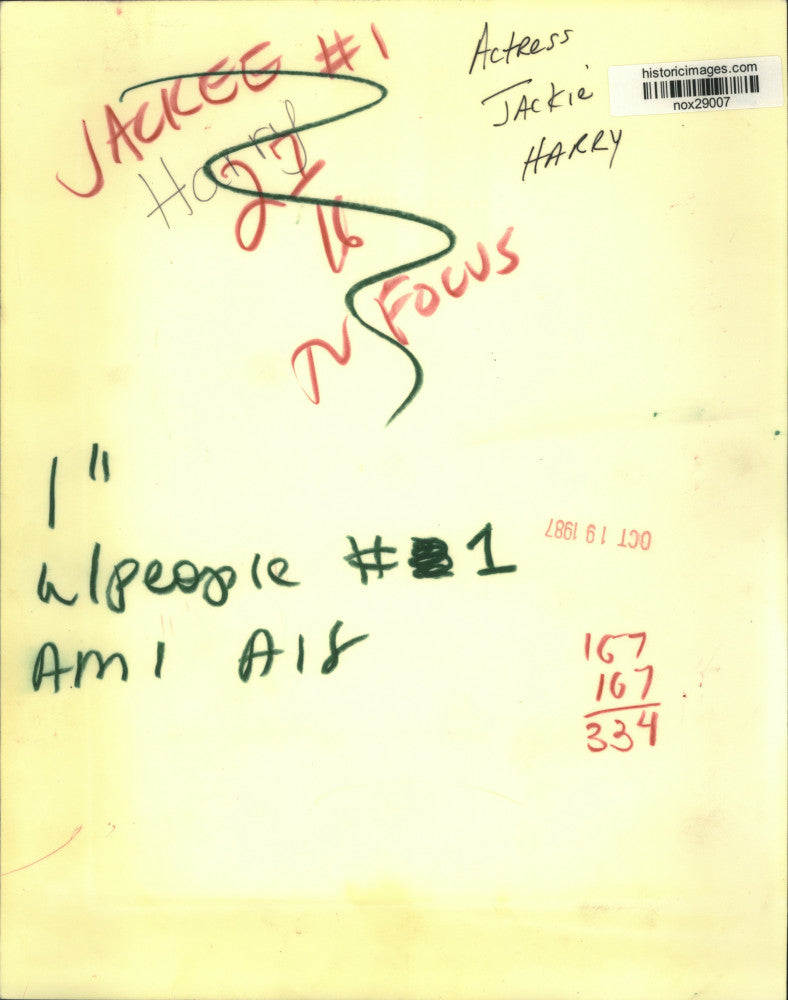 JACKEE #1
Harry
27/16
N FOCUS
Actress
JACKIE
HARRY
historicimages.com
nox29007
1"
w/people # 1
AM1 A18
OCT 19 1987
167
167
334